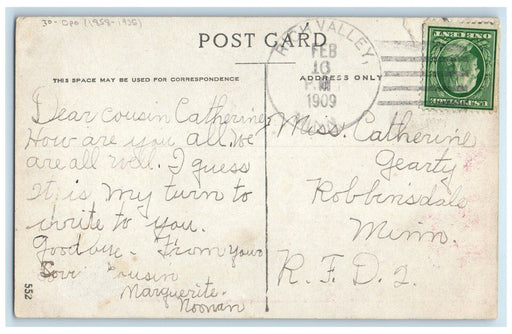 30- Opo (1858-1935)
POST CARD
THIS SPACE MAY BE USED FOR CORRESPONDENCE
ADDRESS ONLY
RICH VALLEY,
FEB
16
P.M.
1909
MINN.
ONE CENT
U.S. POSTAGE
Dear cousin Catherine
How are you all. We
are all well. I guess
it is my turn to
write to you.
Goodbye. From your
Cousin
Marguerite.
Noonan
Miss. Catherine
Gearty
Robbinsdale
Minn.
R. F. D. 2.
552